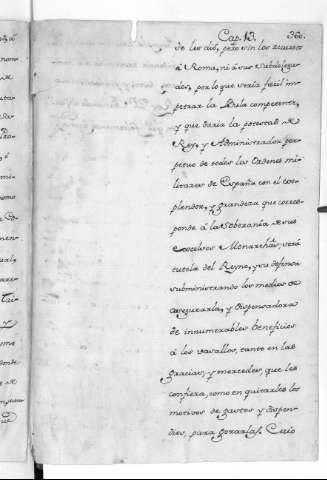 Cap. 13. 360.
de les dis, pero sin los recursos
á Roma, ni á sus subdelega-
dos, por lo que seria facil im-
petrar la Bula competente,
y que daria la potestad de
Rey, y Administrador per-
petuo de todas las Ordenes mi-
litares de España con el es-
plendor, y grandeza que corres-
ponde á la Soberanía de sus
excelsos Monarchas, será
tutela del Reyno, y su defensa
subministrando los medios de
asegurarla, y dispensadora
de innumerables beneficios
á los vasallos, tanto en las
gracias, y mercedes, que les
confiera, como en quitarles los
motivos de gastos y dispen-
dios, para gozarlas. Cuio